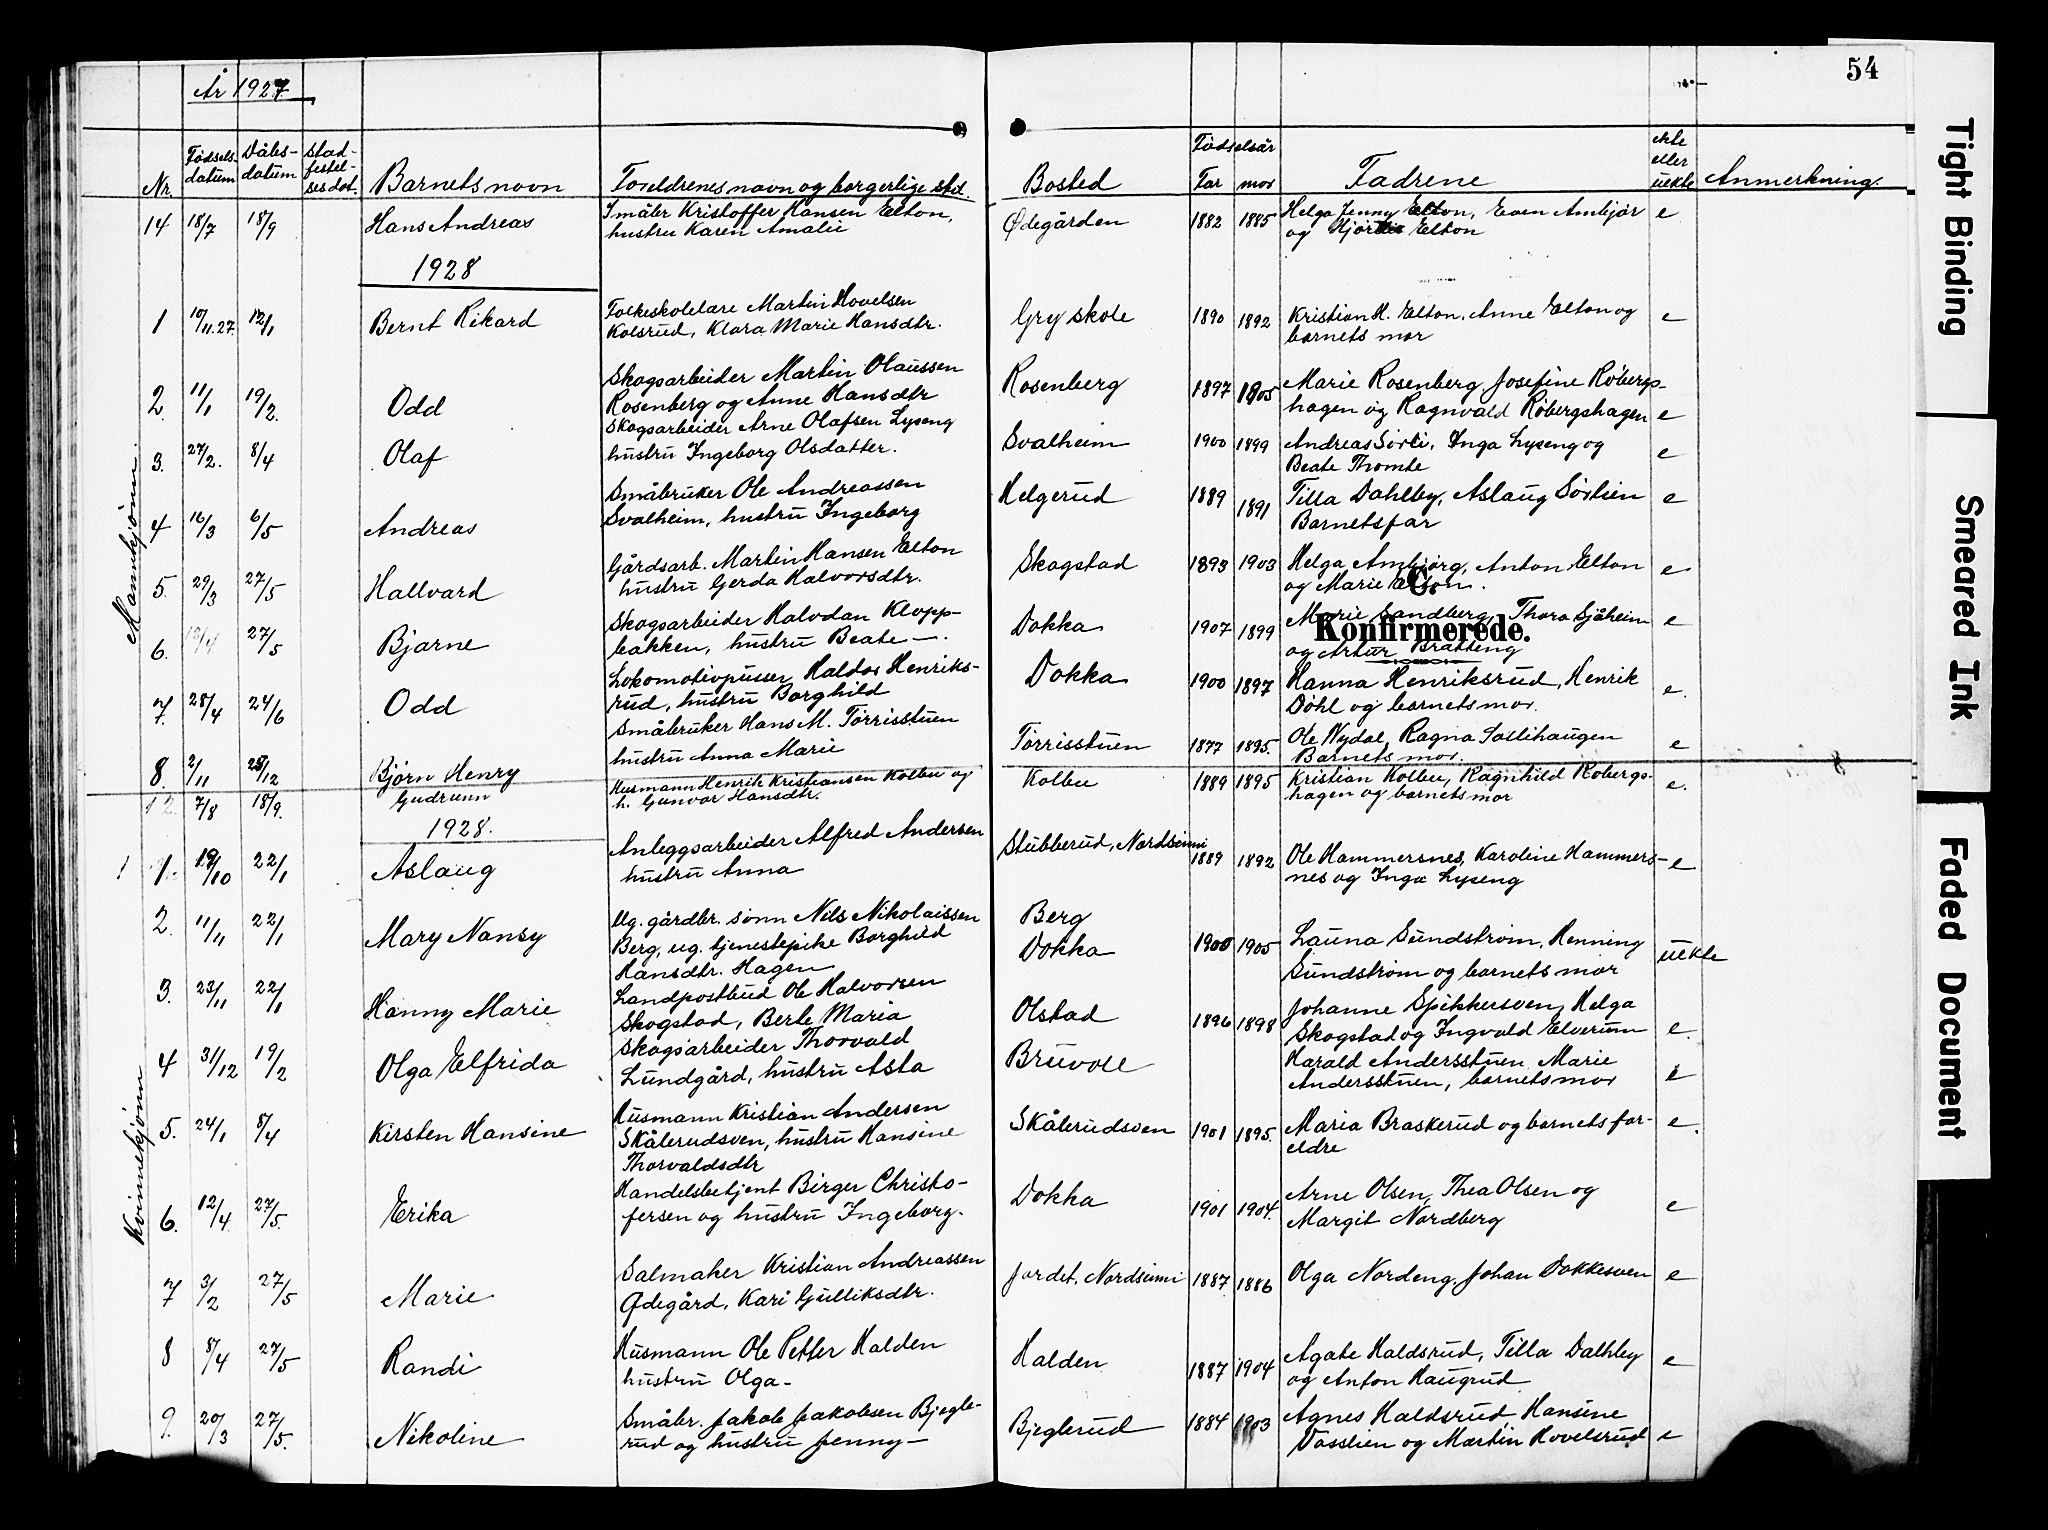 54
År 1927
Nr. Fødsels-datum Dåbs-datum stad-festel-ses dat. Barnets navn Foreldrenes navn og borgerlige stil. Bosted Fødselsår Far mor Fadrene ekte eller uekte Anmerkning.
14 18/7 18/9 Hans Andreas Småbr Kristoffer Hansen Elton, Ødegården 1882 1885 Helga Jenny Elton, Even Ambjør e
hustru Karen Amalie og Hjørdis Elton
1928
Mannkjønn.
1 10/11.27 12/1 Bernt Rikard Folkeskolelare Martin Hovelsen Gry skole 1890 1892 Kristian H. Elton, Anne Elton og e
Kolsrud, Klara Marie Hansdtr. barnets mor
2. 11/1 19/2. Odd Skogsarbeider Martin Olaussen Rosenberg 1897 1905 Marie Rosenberg, Josefine Røbergs-
Rosenberg og Anne Hansdtr hagen og Ragnvald Røbergshagen e
3. 27/2. 8/4 Olaf Skogsarbeider Arne Olafsen Lyseng Svalheim 1900 1899 Andreas Sørli, Inga Lyseng og e
hustru Ingeborg Olsdatter. Beate Thomle
4 16/3 6/5 Andreas Småbruker Ole Andreassen Helgerud 1889 1891 Tilla Dahlby, Aslaug Sørlien e
Svalheim, hustru Ingeborg Barnets far
5. 29/3 27/5 Hallvard Gårdsarb. Martin Hansen Elton Skogstad 1893 1903 Helga Ambjørg, Anton Elton e
hustru Gerda Halvorsdtr. og Marie Elton.
C.
Konfirmerede.
6. 12/4 27/5 Bjarne Skogsarbeider Halvdan Klopp- Dokka 1907 1899 Marie Sandberg, Thora Sjåheim e
bakken, hustru Beate —. og Artur Bratteng
7. 28/4 24/6 Odd Lokomotivpusser Haldor Henriks- Dokka 1900 1897 Hanna Henriksrud, Henrik e.
rud, hustru Borghild Døhl og barnets mor.
8. 2/11 28/12 Bjørn Henry Småbruker Hans M. Tørrisstuen Tørrisstuen 1877 1895. Ole Nydal, Ragna Soslihaugen e
hustru Anna Marie Barnets mor.
12 7/8 18/9. Gudrunn Husmann Henrik Kristiansen Kolbu og Kolbu 1889 1895 Kristian Kolbu, Ragnhild Robergs- e.
h. Gunvor Hansdtr. hagen og barnets mor
1928.
Kvinnekjønn
1 1. 19/10 22/1 Aslaug Anleggsarbeider Alfred Andersen Stubberud, Nordsinni 1889 1892 Ole Hammersnes, Karoline Hammers- e
hustru Anna nes og Inga Lyseng
2. 11/11 22/1 Mary Nansy Ug. gårdbr. sønn Nils Nikolaissen Berg
Berg, ug. tjenestepike Borghild Dokka 1900 1905 Launa Sundstrøm, Henning uekte
Hansdtr. Hagen Sundstrøm og barnets mor
3. 23/11 22/1 Hanny Marie Landpostbud Ole Halvorsen Olstad 1896 1898 Johanne Spikkersven, Helga
Skogstad, Berte Maria Skogstad og Ingvald Elverum e.
4 31/12 19/2 Olga Elfrida Skogsarbeider Thorvald Bruvoll Harald Andersstuen, Marie
Lundgård, hustru Asta Andersstuen, barnets mor e
5. 24/1 8/4 Kirsten Hansine Husmann Kristian Andersen Skålerudsven 1901 1895. Maria Braskerud og barnets for- e.
Skålerudsven, hustru Hansine eldre
Thorvaldsdtr
6. 12/4. 27/5. Erika Handelsbetjent Birger Christo- Dokka 1901 1904. Arne Olsen, Thea Olsen og e
fersen og hustru Ingeborg. Margit Nordberg
7 3/2 27/5 Marie Salmaker Kristian Andreassen Jordet, Nordsinni 1887 1886 Olga Nordeng, Johan Dokkesven e
Ødegård, Kari Gulliksdtr.
8 8/4 27/5 Randi Husmann Ole Petter Halden Halden 1887 1904 Agate Haldsrud, Tilla Dalhby e
hustru Olga - og Anton Haugrud
9. 20/3 27/5. Nikoline Småbr. Jakob Jakobsen Bjegle- Bjeglerud 1884 1903 Agnes Haldsrud, Hansine
rud og hustru Jenny — Vasslien og Martin Hovelsrud e
Tight Binding
Smeared Ink
Faded Document